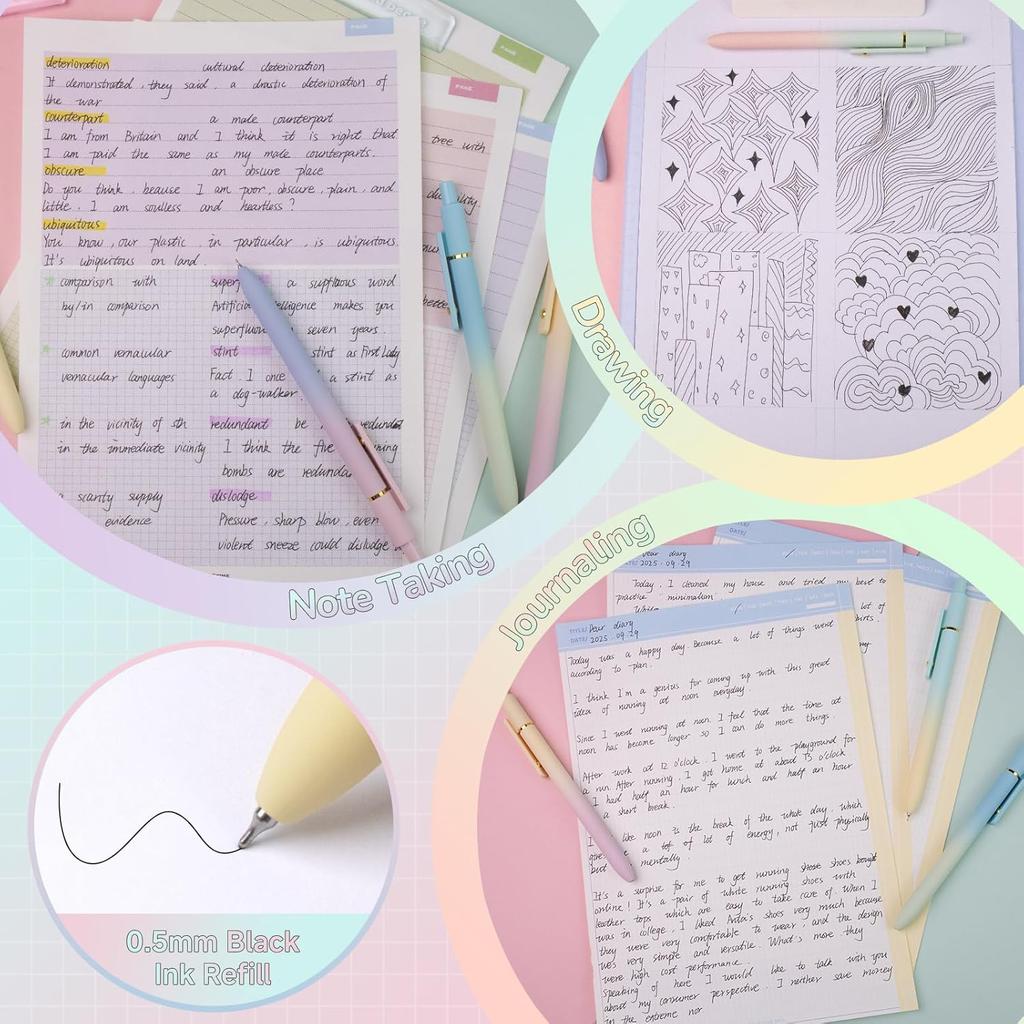 PAGE:
deterioration cultural deterioration
It demonstrated, they said, a drastic deterioration of
the war
counterpart a male counterpart
I am from Britain and I think it is right that
I am paid the same as my male counterparts.
obscure an obscure place
Do you think, beause I am poor, obscure, plain, and
little, I am soulless and heartless?
ubiquitous
You know, our plastic, in particular, is ubiquitous.
It's ubiquitous on land.
comparison with super a supfluous word
by/in comparison Artificia elligence makes you
superfluou seven years.
common vernaiular stint stint as First Lady
vernacular languages Fact. I once a stint as
a dog-walker
in the vicinity of sth redundant be redundant
in the immediate vicinity I think the five
bombs are redunda
a scanty supply dislodge
evidence Pressure, sharp blow, even
violent sneeze could dislodge
PAGE:
tree with
PAGE:
Note Taking
Drawing
Journaling
Dear diary
DATE/ 2025.09.29
Today, I cleaned my house and tried my best to
practice "minimalism"
lot of
TITLE/ Dear diary
DATE/ 2025.09.29
Today was a happy day. Because a lot of things went
according to plan.
I think I'm a genius for coming up with this great
idea of running at noon everyday.
Since I went running at noon, I feel that the time at
noon has become longer so I can do more things.
After work at 12 o'clock, I went to the playground for
a run. After running, I got home at about 13 o'clock.
I had half an hour for lunch and half an hour
a short break.
like noon is the break of the whole day, which
a top of lot of energy, not just physically
but mentally.
It's a surprise for me to get running shoes bought
online! It's a pair of white running shoes with
leather tops which are easy to take care of. When I
was in college, I liked Anta's shoes very much because
they were very comfortable to wear, and the design
was very simple and versatile. What's more they
were high cost performance.
Speaking of here I would like to talk with you
about my consumer perspective. I neither save money
in the extreme nor
0.5mm Black
Ink Refill